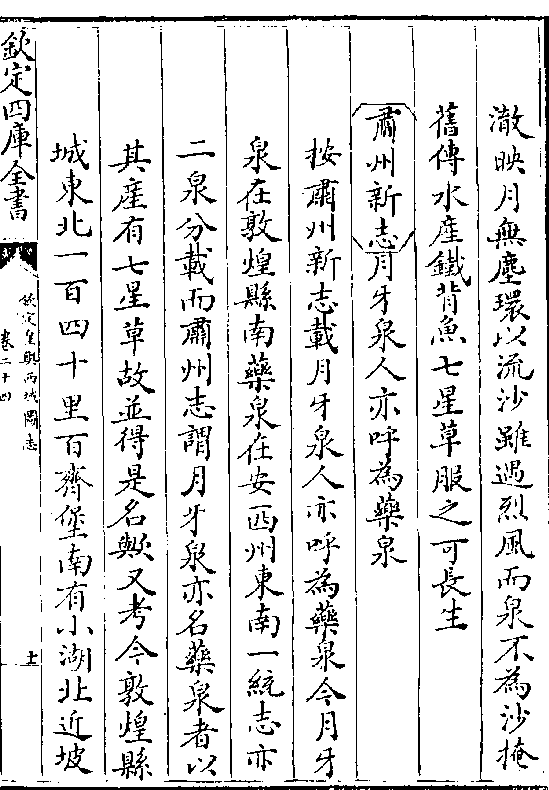 澈映月無塵環以流沙雖遇烈風而泉不為沙掩
舊傳水產鐵背魚七星草服之可長生
肅州新志月牙泉人亦呼為藥泉
按肅州新志載月牙泉人亦呼為藥泉今月牙
泉在敦煌縣南藥泉在安西州東南一統志亦
二泉分載而肅州志謂月牙泉亦名藥泉者以
其產有七星草故並得是名歟又考今敦煌縣
城東北一百四十里百齊堡南有小湖北近坡
欽定四庫全書
欽定皇輿西域圖志
卷二十四
十一